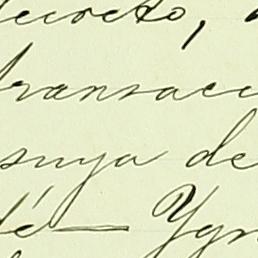 decreto,
transacc
suya de
dé— Ygn